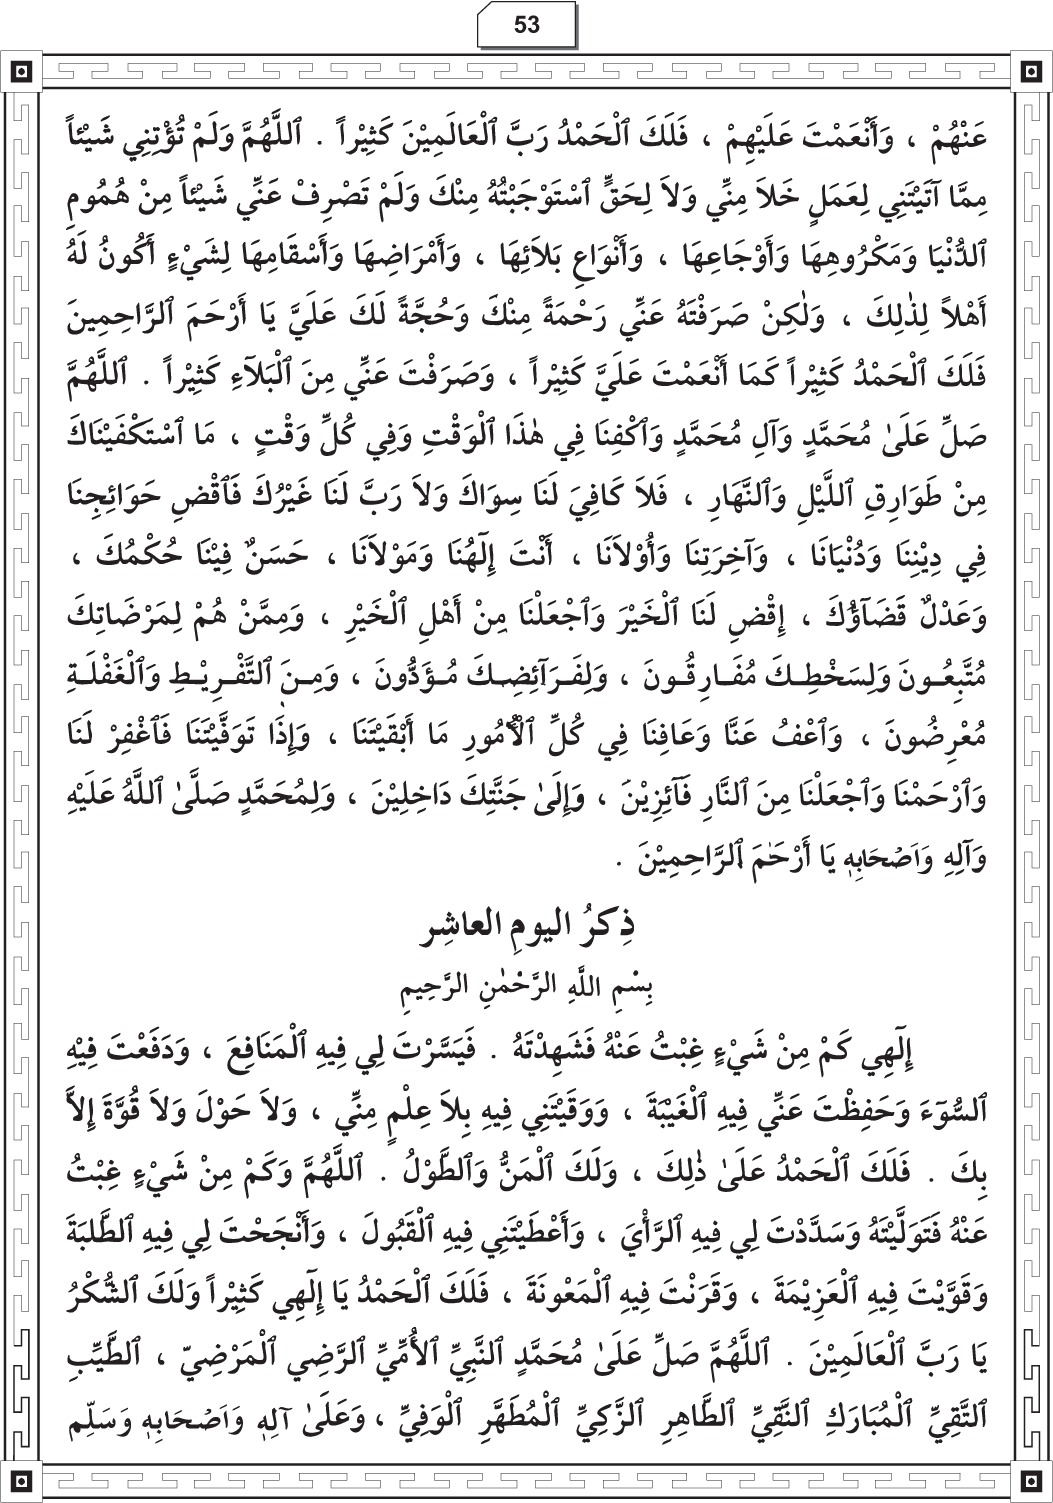 53
عَنْهُمْ ، وَأَنْعَمْتَ عَلَيْهِمْ ، فَلَكَ ٱلْحَمْدُ رَبَّ ٱلْعَالَمِيْنَ كَثِيْراً . اَللَّهُمَّ وَلَمْ تُؤْتِنِي شَيْئاً
مِمَّا آتَيْتَنِي لِعَمَلٍ خَلاَ مِنِّي وَلاَ لِحَقٍّ ٱسْتَوْجَبْتُهُ مِنْكَ وَلَمْ تَصْرِفْ عَنِّي شَيْئاً مِنْ هُمُومِ
ٱلدُّنْيَا وَمَكْرُوهِهَا وَأَوْجَاعِهَا ، وَأَنْوَاعِ بَلاَئِهَا ، وَأَمْرَاضِهَا وَأَسْقَامِهَا لِشَيْءٍ أَكُونُ لَهُ
أَهْلاً لِذٰلِكَ ، وَلٰكِنْ صَرَفْتَهُ عَنِّي رَحْمَةً مِنْكَ وَحُجَّةً لَكَ عَلَيَّ يَا أَرْحَمَ ٱلرَّاحِمِينَ
فَلَكَ ٱلْحَمْدُ كَثِيْراً كَمَا أَنْعَمْتَ عَلَيَّ كَثِيْراً ، وَصَرَفْتَ عَنِّي مِنَ ٱلْبَلآءِ كَثِيْراً . اَللَّهُمَّ
صَلِّ عَلَىٰ مُحَمَّدٍ وَآلِ مُحَمَّدٍ وَٱكْفِنَا فِي هٰذَا ٱلْوَقْتِ وَفِي كُلِّ وَقْتٍ ، مَا ٱسْتَكْفَيْنَاكَ
مِنْ طَوَارِقِ ٱللَّيْلِ وَٱلنَّهَارِ ، فَلاَ كَافِيَ لَنَا سِوَاكَ وَلاَ رَبَّ لَنَا غَيْرُكَ فَٱقْضِ حَوَائِجِنَا
فِي دِيْنِنَا وَدُنْيَانَا ، وَآخِرَتِنَا وَأُوْلاَنَا ، أَنْتَ إِلٓهُنَا وَمَوْلاَنَا ، حَسَنٌ فِيْنَا حُكْمُكَ ،
وَعَدْلٌ قَضَآؤُكَ ، إِقْضِ لَنَا ٱلْخَيْرَ وَٱجْعَلْنَا مِنْ أَهْلِ ٱلْخَيْرِ ، وَمِمَّنْ هُمْ لِمَرْضَاتِكَ
مُتَّبِعُـونَ وَلِسَخْطِـكَ مُفَـارِقُـونَ ، وَلِفَـرَآئِضِـكَ مُـؤَدُّونَ ، وَمِـنَ ٱلتَّفْـرِيْـطِ وَٱلْغَفْلَـةِ
مُعْرِضُونَ ، وَٱعْفُ عَنَّا وَعَافِنَا فِي كُلِّ ٱلْأُمُورِ مَا أَبْقَيْتَنَا ، وَإِذَا تَوَفَّيْتَنَا فَٱغْفِرْ لَنَا
وَٱرْحَمْنَا وَٱجْعَلْنَا مِنَ ٱلنَّارِ فَآئِزِيْنَ ، وَإِلَىٰ جَنَّتِكَ دَاخِلِيْنَ ، وَلِمُحَمَّدٍ صَلَّىٰ ٱللَّهُ عَلَيْهِ
وَآلِهِ وَاَصْحَابِهٖ يَا أَرْحَمَ ٱلرَّاحِمِيْنَ .
ذِكرُ اليومِ العاشِر
بِسْمِ اللَّهِ الرَّحْمٰنِ الرَّحِيمِ
إِلٓهِي كَمْ مِنْ شَيْءٍ غِبْتُ عَنْهُ فَشَهِدْتَهُ . فَيَسَّرْتَ لِي فِيهِ ٱلْمَنَافِعَ ، وَدَفَعْتَ فِيْهِ
ٱلسُّوٓءَ وَحَفِظْتَ عَنِّي فِيهِ ٱلْغَيْبَةَ ، وَوَقَيْتَنِي فِيهِ بِلاَ عِلْمٍ مِنِّي ، وَلاَ حَوْلَ وَلاَ قُوَّةَ إِلاَّ
بِكَ . فَلَكَ ٱلْحَمْدُ عَلَىٰ ذٰلِكَ ، وَلَكَ ٱلْمَنُّ وَٱلطَّوْلُ . اَللَّهُمَّ وَكَمْ مِنْ شَيْءٍ غِبْتُ
عَنْهُ فَتَوَلَّيْتَهُ وَسَدَّدْتَ لِي فِيهِ ٱلرَّأْيَ ، وَأَعْطَيْتَنِي فِيهِ ٱلْقَبُولَ ، وَأَنْجَحْتَ لِي فِيهِ ٱلطَّلبَةَ
وَقَوَّيْتَ فِيهِ ٱلْعَزِيْمَةَ ، وَقَرَنْتَ فِيهِ ٱلْمَعْونَةَ ، فَلَكَ ٱلْحَمْدُ يَا إِلٓهِي كَثِيْراً وَلَكَ ٱلشُّكْرُ
يَا رَبَّ ٱلْعَالَمِيْنَ . اَللَّهُمَّ صَلِّ عَلَىٰ مُحَمَّدٍ ٱلنَّبِيِّ ٱلأُمِّيِّ ٱلرَّضِي ٱلْمَرْضِيّ ، ٱلطَّيِّبِ
ٱلتَّقِيِّ ٱلْمُبَارَكِ ٱلنَّقِيِّ ٱلطَّاهِرِ ٱلزَّكِيِّ ٱلْمُطَهَّرِ ٱلْوَفِيِّ ، وَعَلَىٰ آلِهٖ وَاَصْحَابِهٖ وَسَلِّم